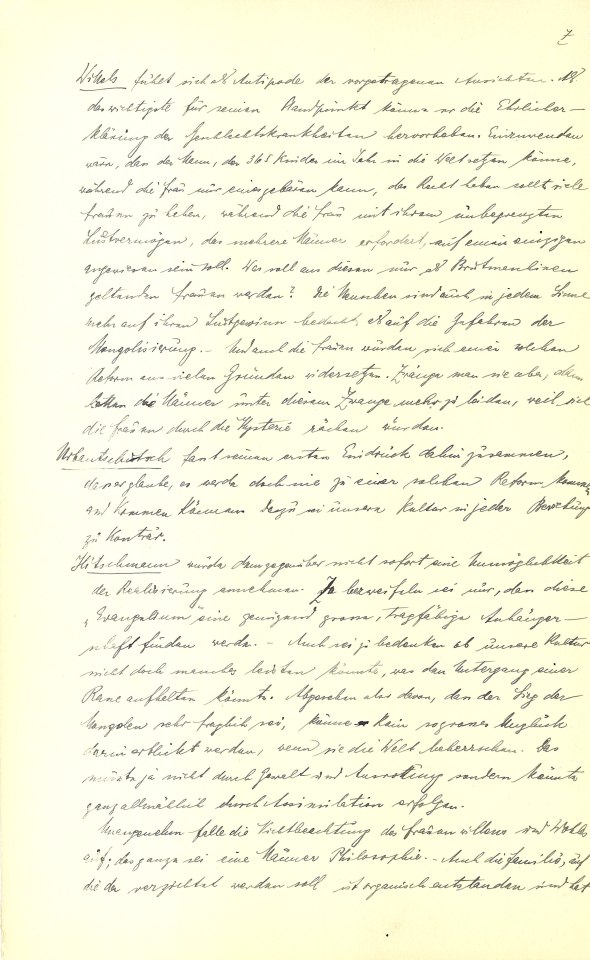 7
Wittels fühlt sich als Antipode der vorgetragenen Ansichten. Als
das wichtigste für seinen Standpunkt könne er die Ehrlicher-
klärung der Geschlechtskrankheiten hervorheben. Einzuwenden
wäre, dass der Mann, der 365 Kinder im Jahr in die Welt setzen könne,
während die Frau nur eines gebären kann, das Recht haben sollte viele
Frauen zu haben, während die Frau mit ihrem unbegrenzten
Lustvermögen, das mehrere Männer erfordert, auf einen einzigen
angewiesen sein soll. Was soll aus diesen nur als Brutmaschinen
geltenden Frauen werden? Die Menschen sind auch in jedem Sinne
mehr auf ihren Lustgewinn bedacht, als auf die Gefahren der
Mongolisierung. – Und auch die Frauen würden sich einer solchen
Reform aus vielen Gründen widersetzen. Zwänge man sie aber, dann
hätten die Männer unter diesem Zwange mehr zu leiden, weil sich
die Frauen durch die Hysterie rächen würden.
Urbantschitsch fasst seinen ersten Eindruck dahin zusammen,
dass er glaube, es werde doch nie zu einer solchen Reform kommen
und kommen können dazu sei unsere Kultur in jeder Beziehung
zu konträr.
Hitschmann würde demgegenüber nicht sofort eine Unmöglichkeit
der Realisierung annehmen. Zu bezweifeln sei nur, dass dieses
"Evangelium" eine genügend grosse, tragfähige Anhänger-
schaft finden werde. – Auch sei zu bedenken ob unsere Kultur
nicht doch manches leisten könnte, was den Untergang einer
Rasse aufhalten könnte. Abgesehen also davon, dass der Sieg der
Mongolen sehr fraglich sei, könne kein so grosses Unglück
darin erblickt werden, wenn sie die Welt beherrschen. Das
müsste ja nicht durch Gewalt und Ausrottung sondern könnte
ganz allmählich durch Assimilation erfolgen.
Unangenehm falle die Nichtbeachtung des Frauenwillens und Wohles
auf; das ganze sei eine Männer Philosophie. – Auch die Familie, auf
die da verzichtet werden soll ist organisch entstanden und hat